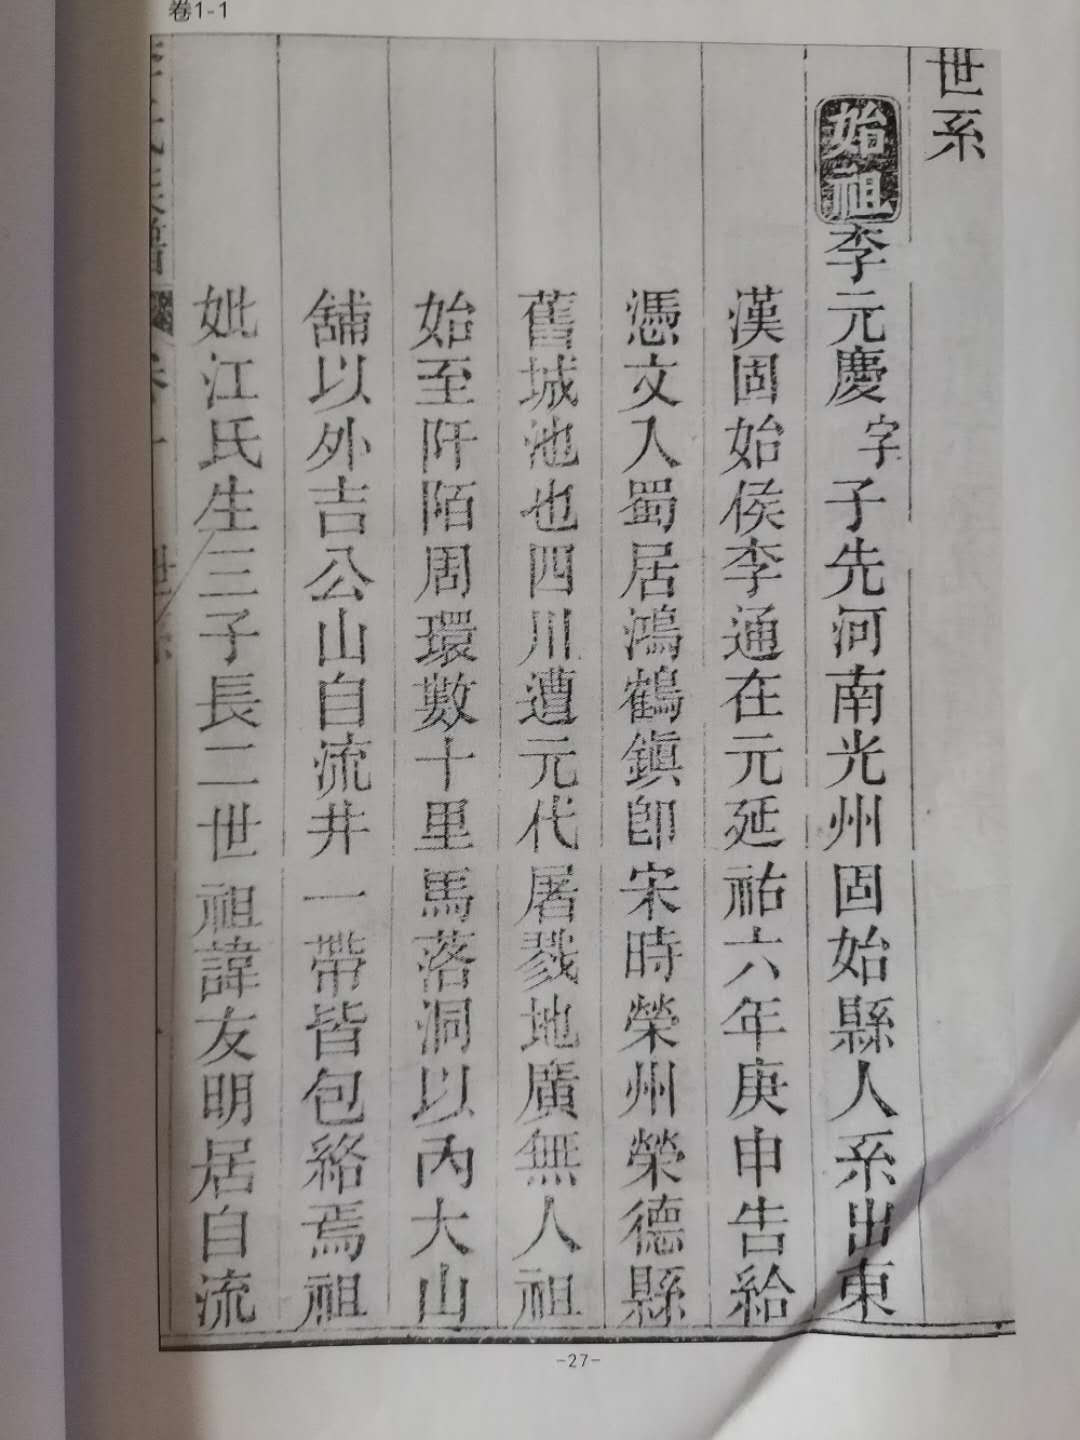 卷1-1
世系
始祖李元慶字子先河南光州固始縣人系出東
漢固始侯李通在元延祐六年庚申告給
憑文入蜀居鴻鶴鎮卽宋時榮州榮德縣
舊城池也四川遭元代屠戮地廣無人祖
始至阡陌周環數十里馬落洞以內大山
舖以外吉公山自流井一帶皆包絡焉祖
妣江氏生三子長二世祖諱友明居自流
-27-